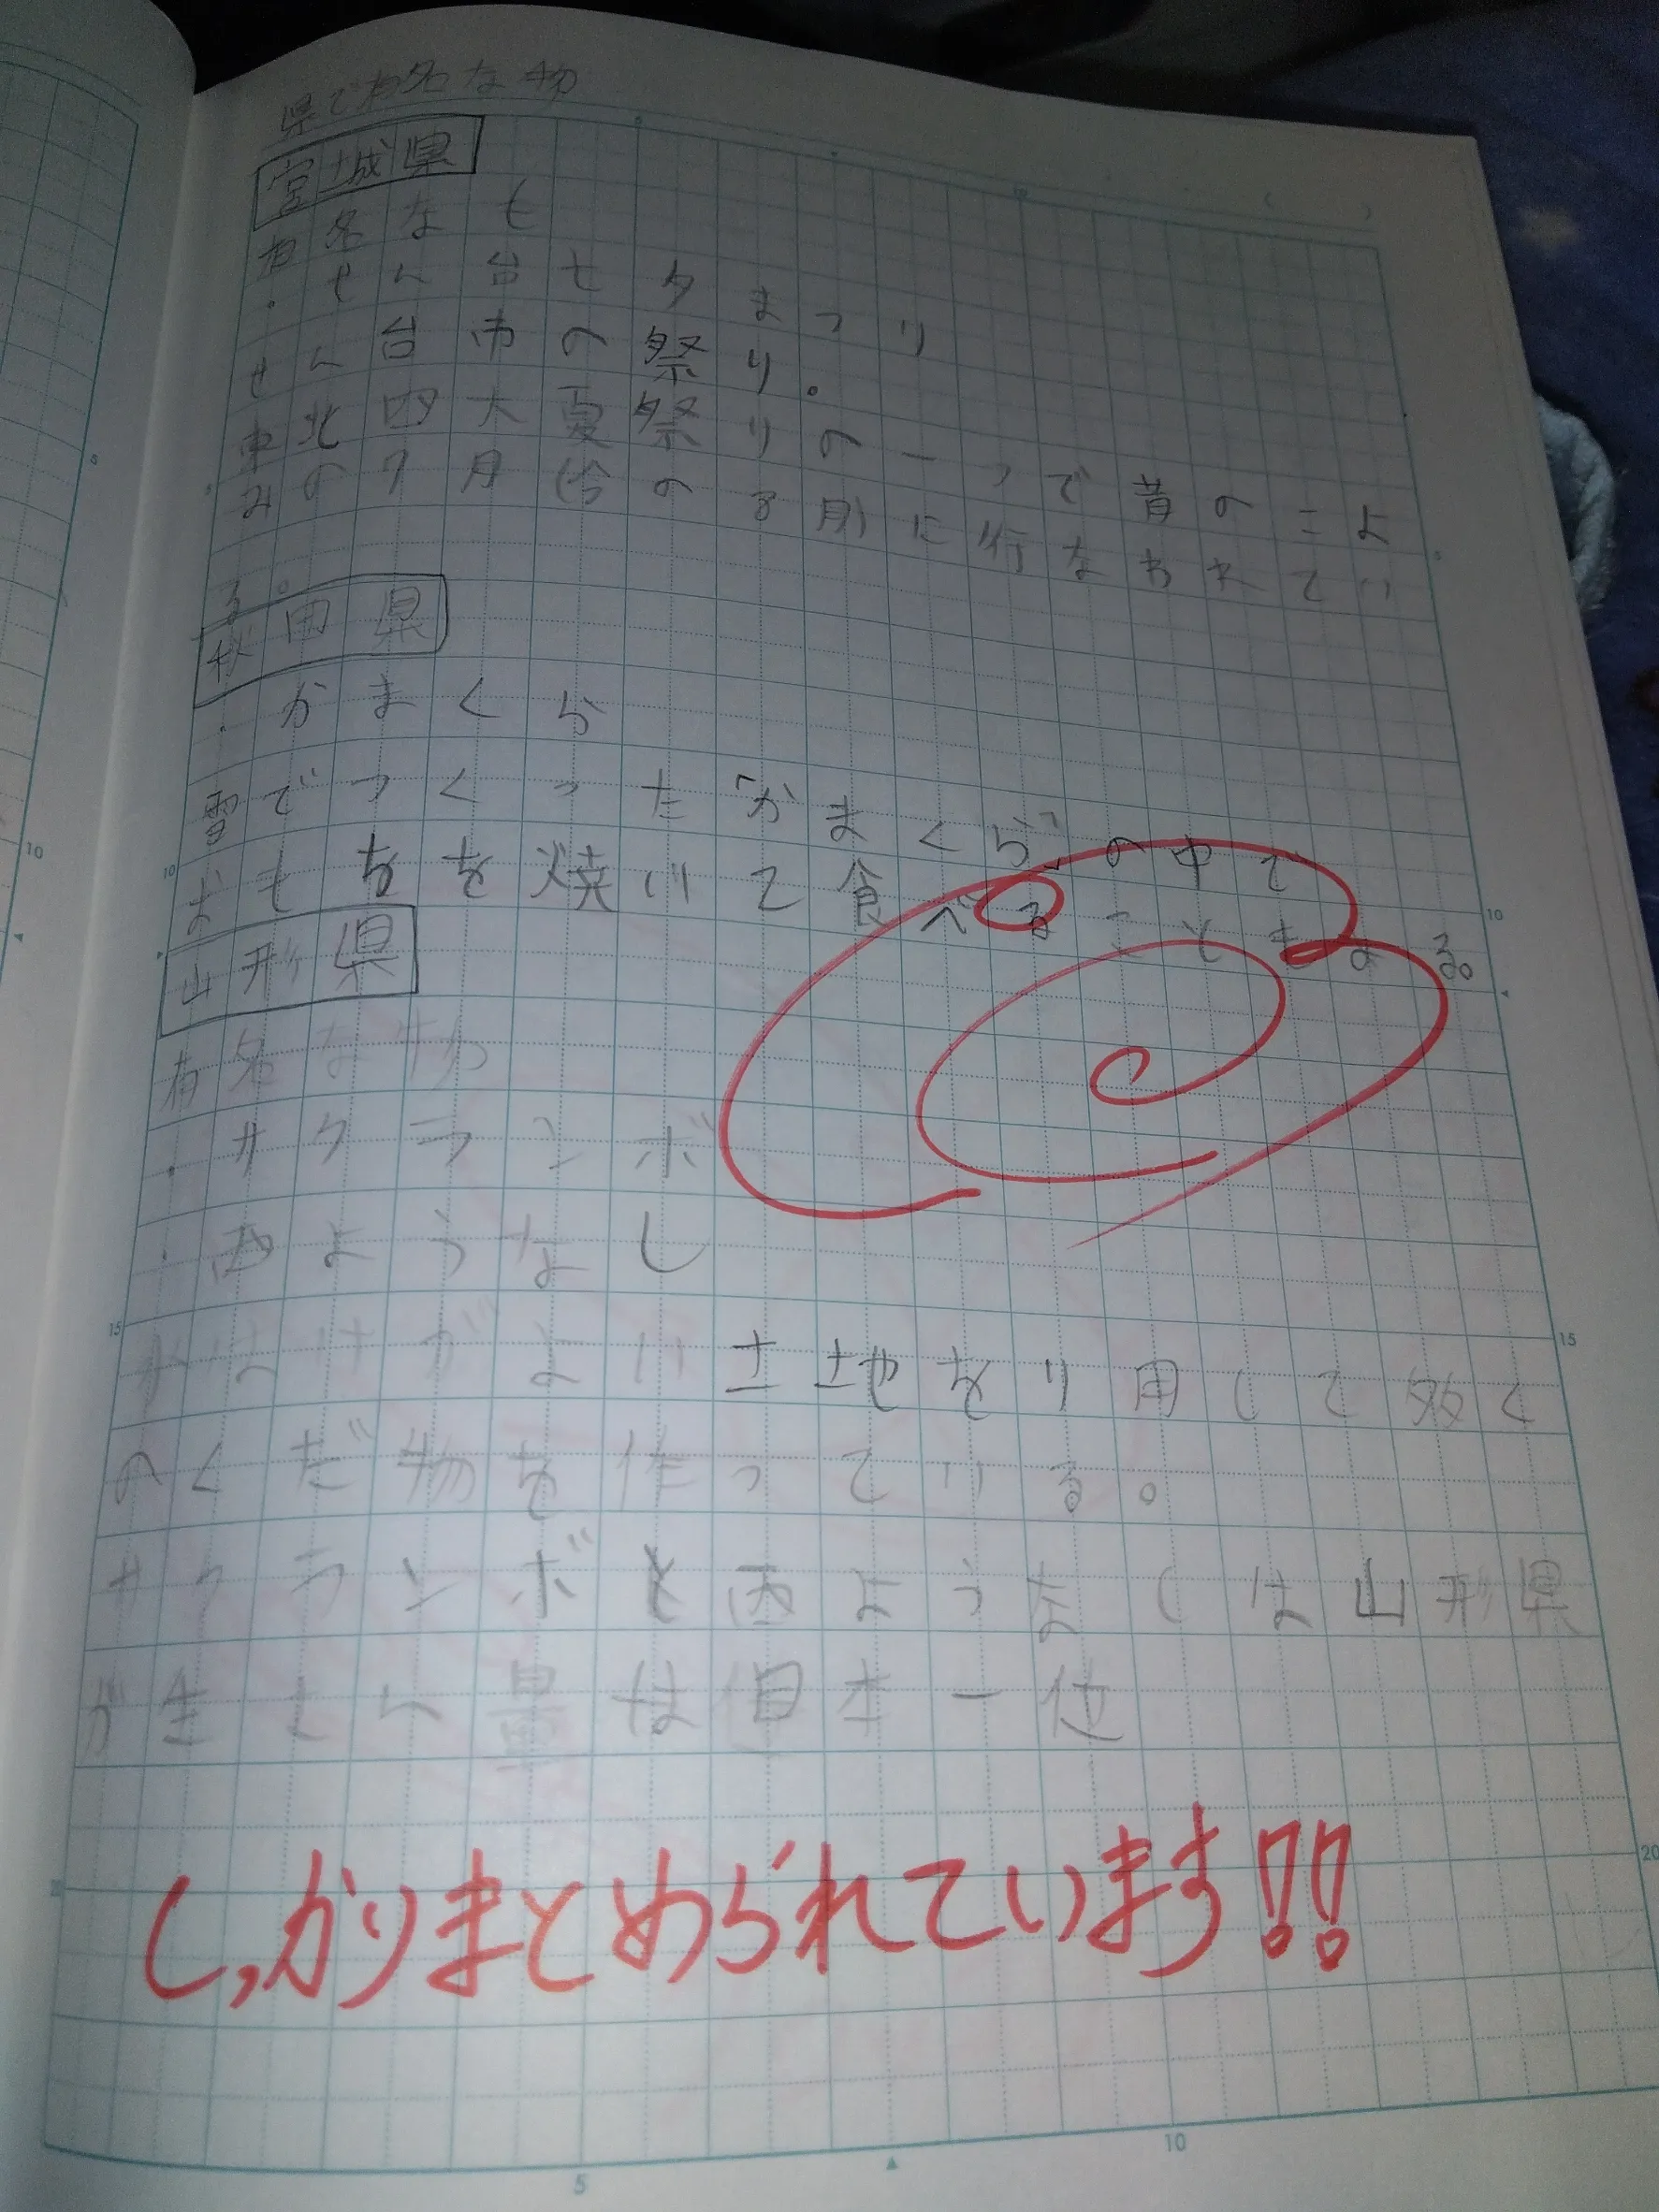 県で有名な物
宮城県
有名なも
・せん台七夕まつり
せん台市の祭り。
東北四大夏祭りの一つで昔のこよ
みの7月(今の8月)に行なわれてい
る。
秋田県
・かまくら
雪でつくった「かまくら」の中で
おもちを焼いて食べることもある。
山形県
有名な物
・サクランボ
・西ようなし
水はけがよい土地をり用して多く
のくだ物を作っている。
サクランボと西ようなしは山形県
が生さん量は日本一位
しっかりまとめられています!!
5
10
15
20
5
10